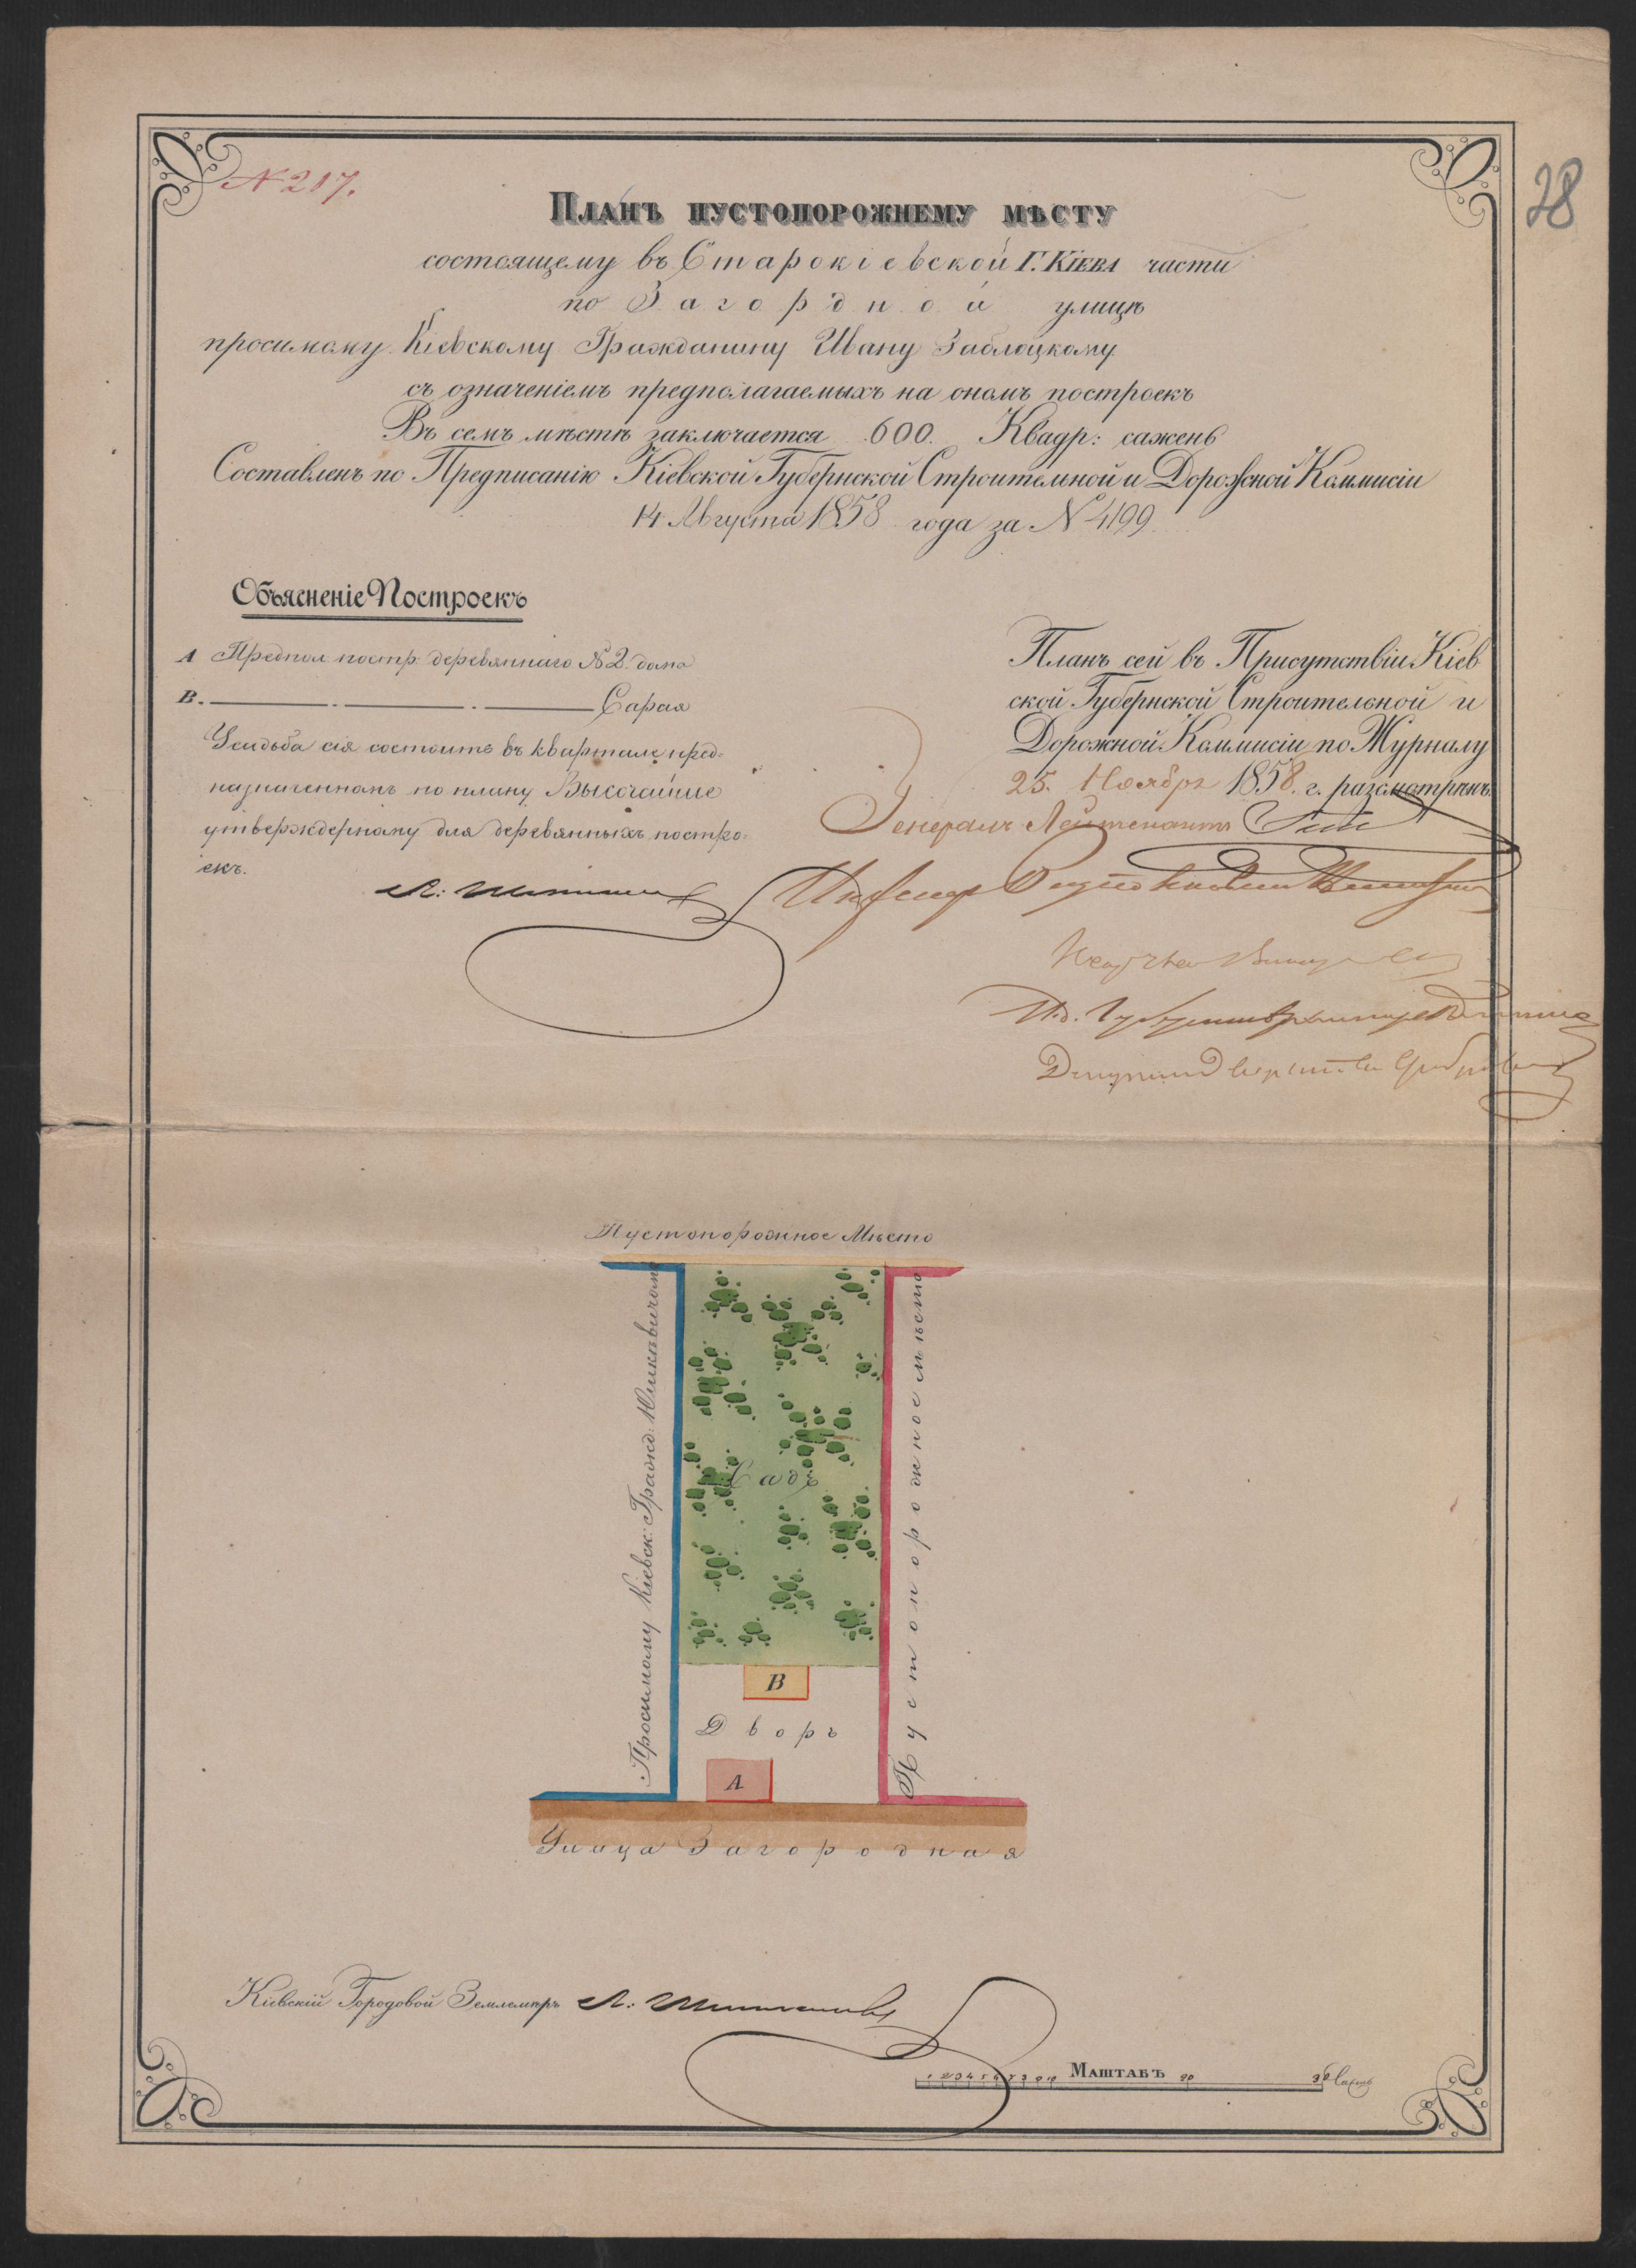 N 217.
28
Планъ пустопорожнему мѣсту
состоящему въ Старокіевской Г. Кіева части
по Загородной улицѣ
просимому Кіевскому Гражданину Ивану Заблоцкому
съ означеніемъ предполагаемыхъ на ономъ построекъ
Въ семъ мѣстѣ заключается 600. Квадр: сажень
Составленъ по Предписанію Кіевской Губернской Строительной и Дорожной Коммисіи
14 Августа 1858 года за N 4199.
Объясненіе Построекъ
А Предпол. постр. деревяннаго N 2. дома
В. Сарая
Усадьба сія состоитъ въ кварталѣ пред-
назначенномъ по плану Высочайше
утвержденному для деревянныхъ постро-
екъ.
Планъ сей въ Присутствіи Кіев
ской Губернской Строительной и
Дорожной Коммисіи по Журналу
25. Ноября 1858. г. разсмотрѣнъ.
Генералъ Лейтенантъ
Пустопорожное Мѣсто
Просимому Кіевск: Гражд: Юшкѣвичомъ
Пустопорожное мѣсто
Садъ
В
Дворъ
А
Улица Загородная
Кіевскій Городовой Землемѣръ
1 2 3 4 5 6 7 8 9 10 Маштабъ 20 30 Саж